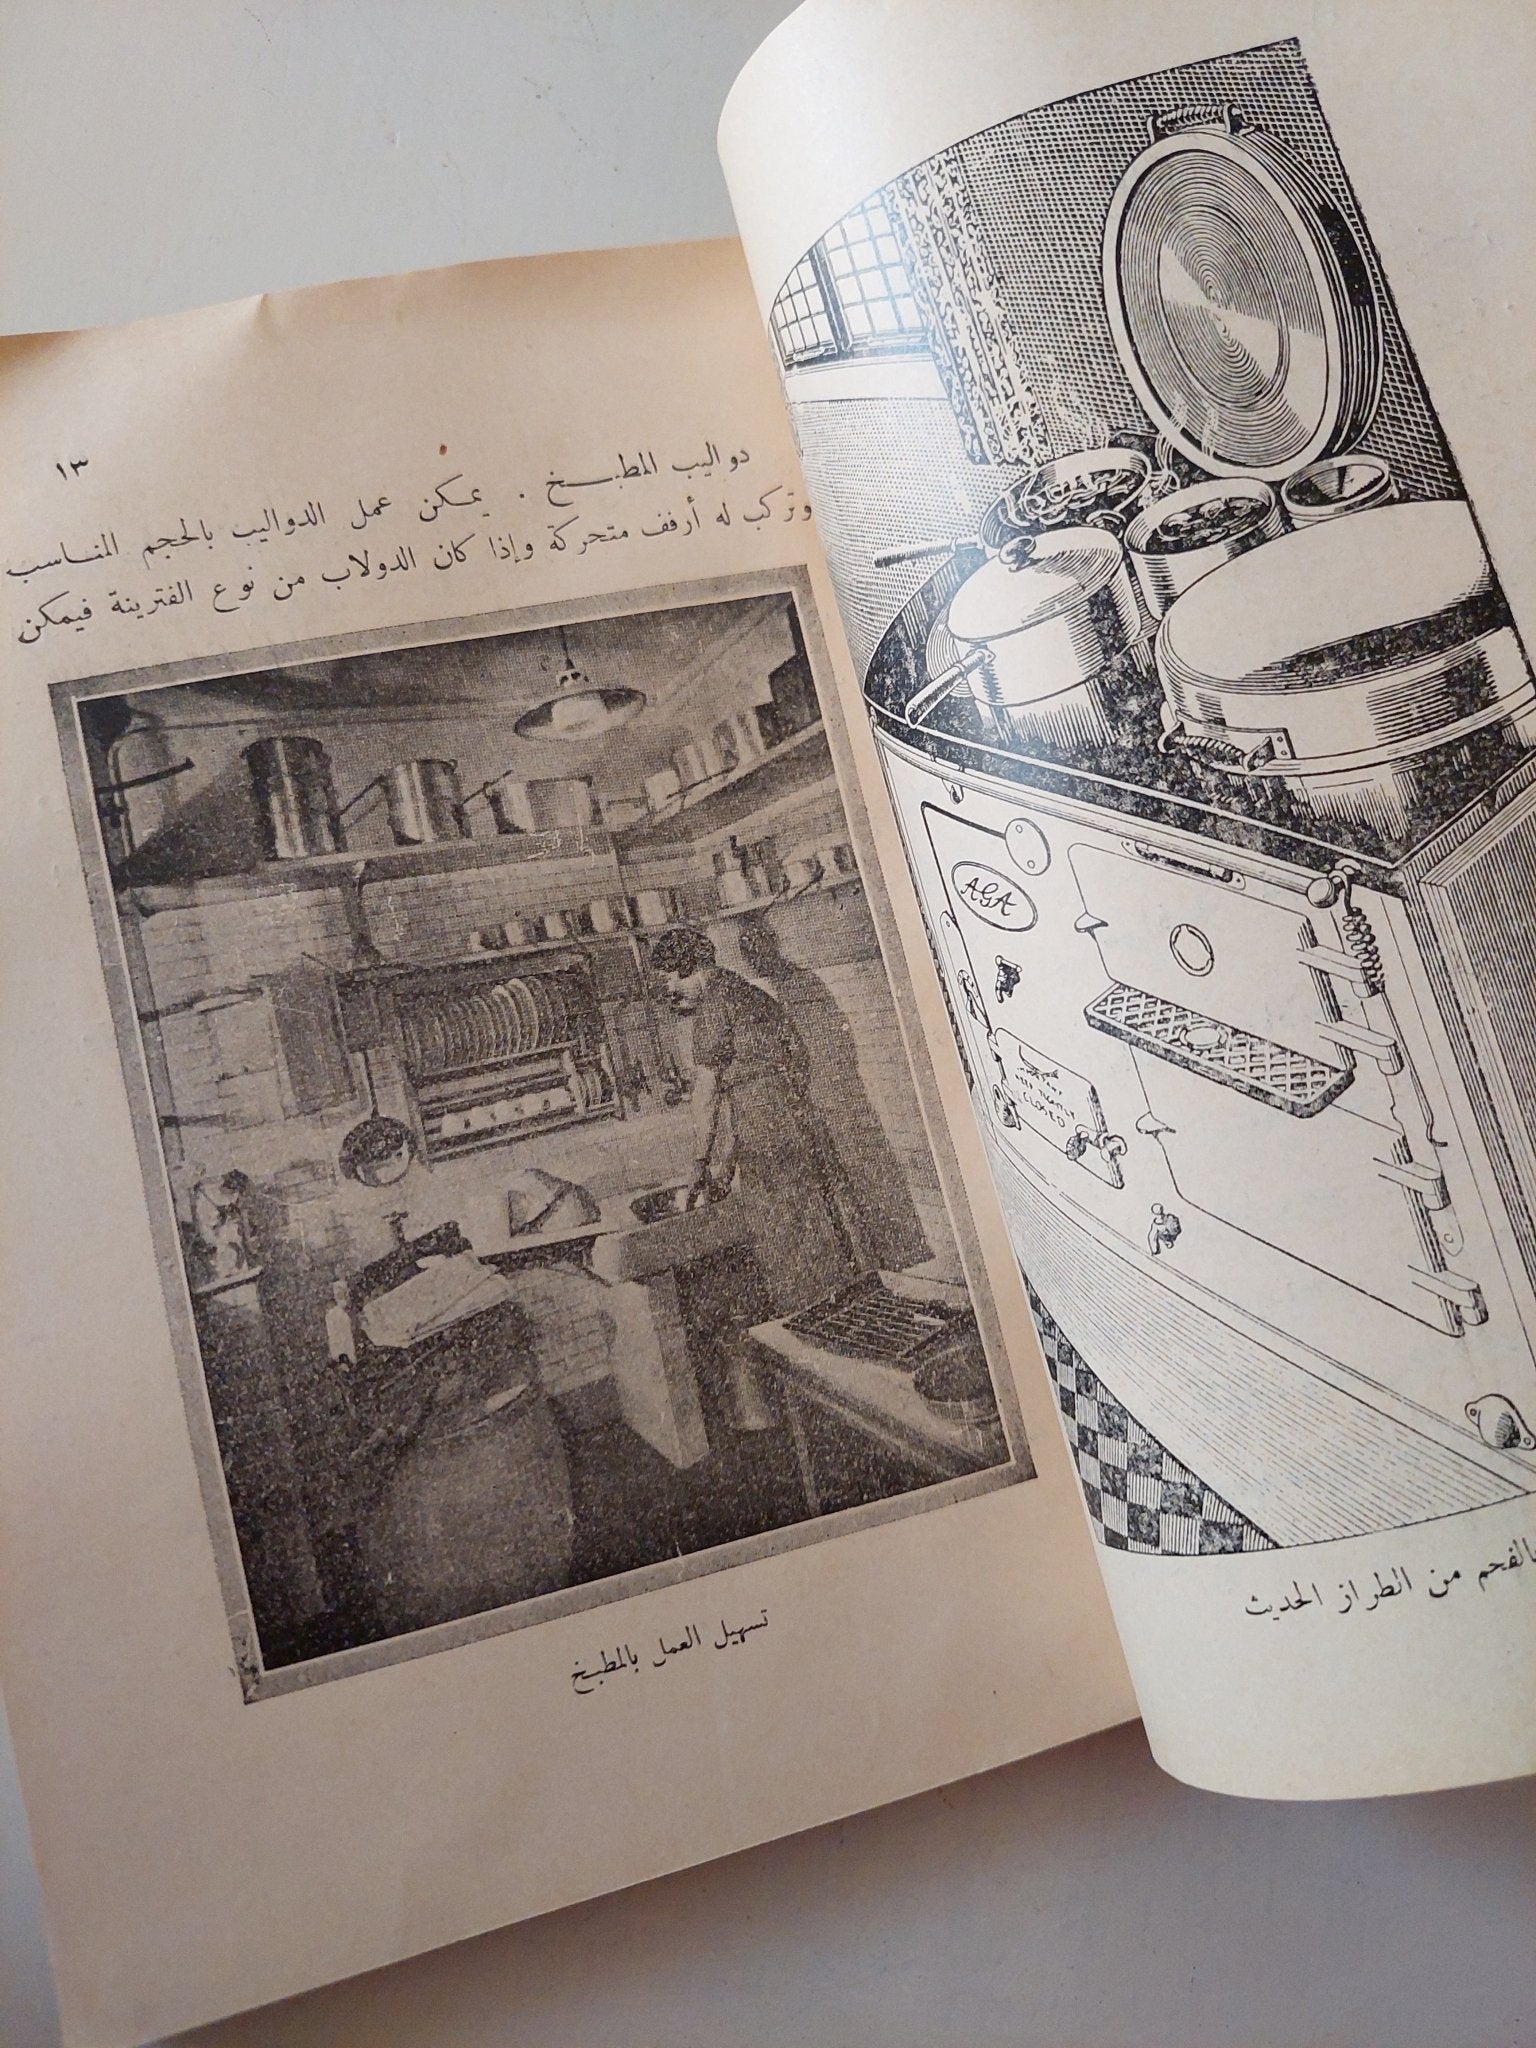 ١٣
دواليب المطبخ . يمكن عمل الدواليب بالحجم المناسب
وتركب له أرفف متحركة وإذا كان الدولاب من نوع الفترينة فيمكن
تسهيل العمل بالمطبخ
AGA
KEEP TIGHTLY
CLOSED
بالفحم من الطراز الحديث